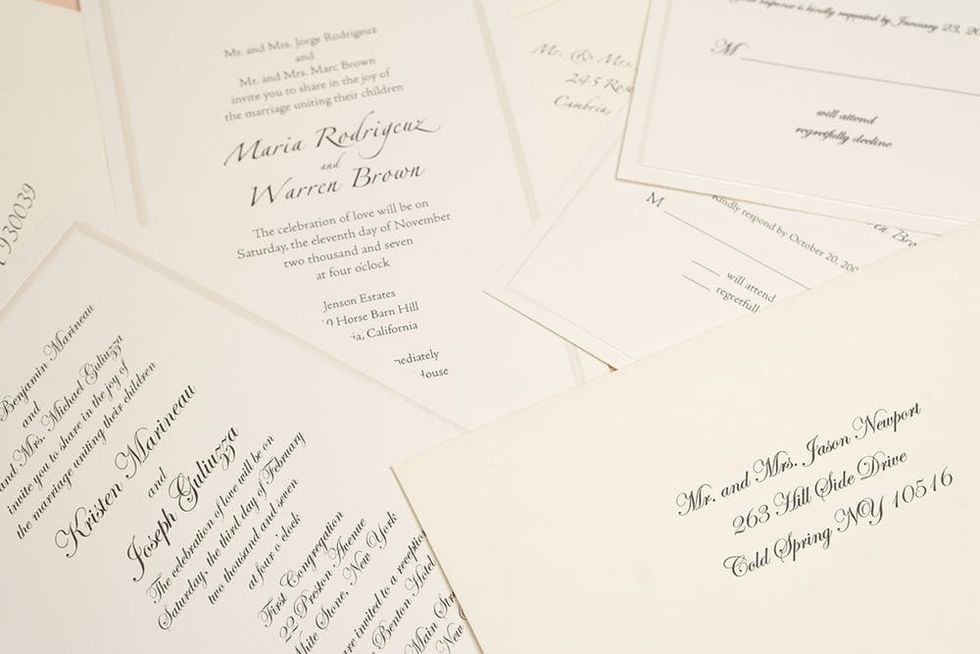 Mr. and Mrs. Jorge Rodrigeuz
and
Mr. and Mrs. Marc Brown
invite you to share in the joy of
the marriage uniting their children
Maria Rodrigeuz
and
Warren Brown
The celebration of love will be on
Saturday, the eleventh day of November
two thousand and seven
at four o'clock
Jenson Estates
Horse Barn Hill
California
Mr. & Mrs.
245
Cambria,
response is kindly requested by January 23,
M
will attend
regretfully decline
M
Kindly respond by October 20,
will attend
930039
Benjamin Marineau
and
and Mrs. Michael Guliuzza
invite you to share in the joy of
the marriage uniting their children
Kristen Marineau
and
Joseph Guliuzza
The celebration of love will be on
Saturday, the third day of February
two thousand and seven
at four o'clock
First Congregation
22 Preston Avenue
Stone, New York
invited to a reception
Benton Hotel
Main
New
Mr. and Mrs. Jason Newport
263 Hill Side Drive
Cold Spring NY 10516